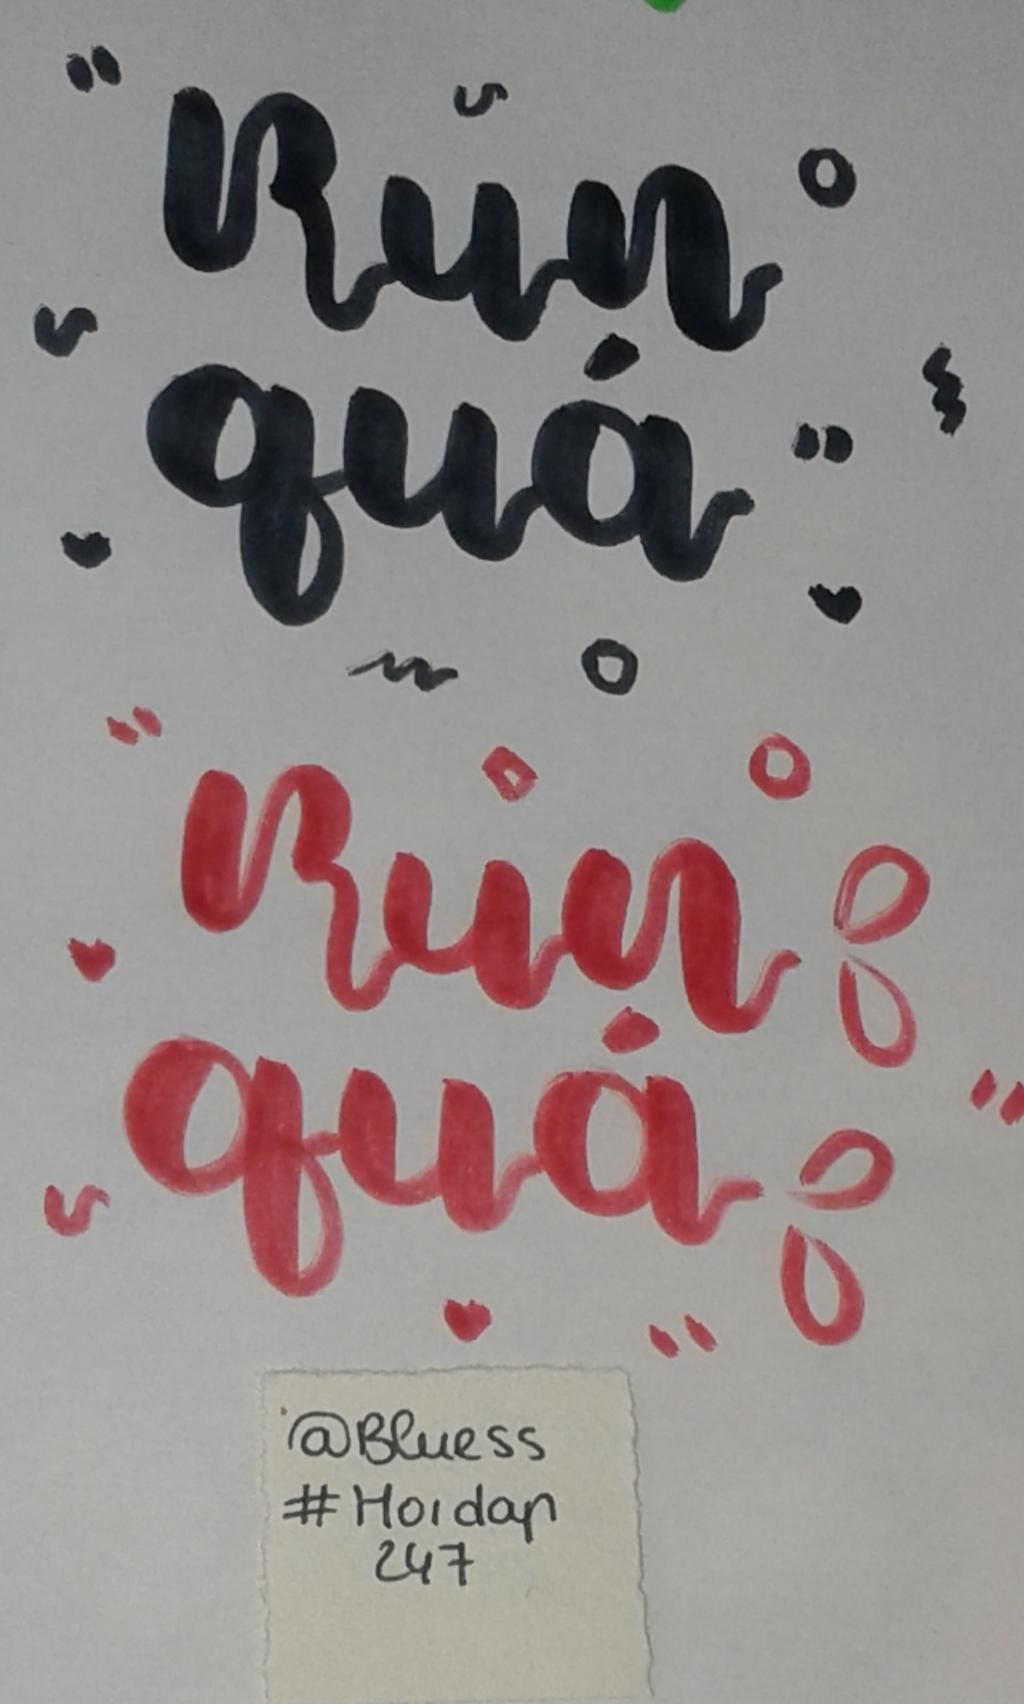 Run
quá
Run
quá
@Bluess
#Hoidap
247